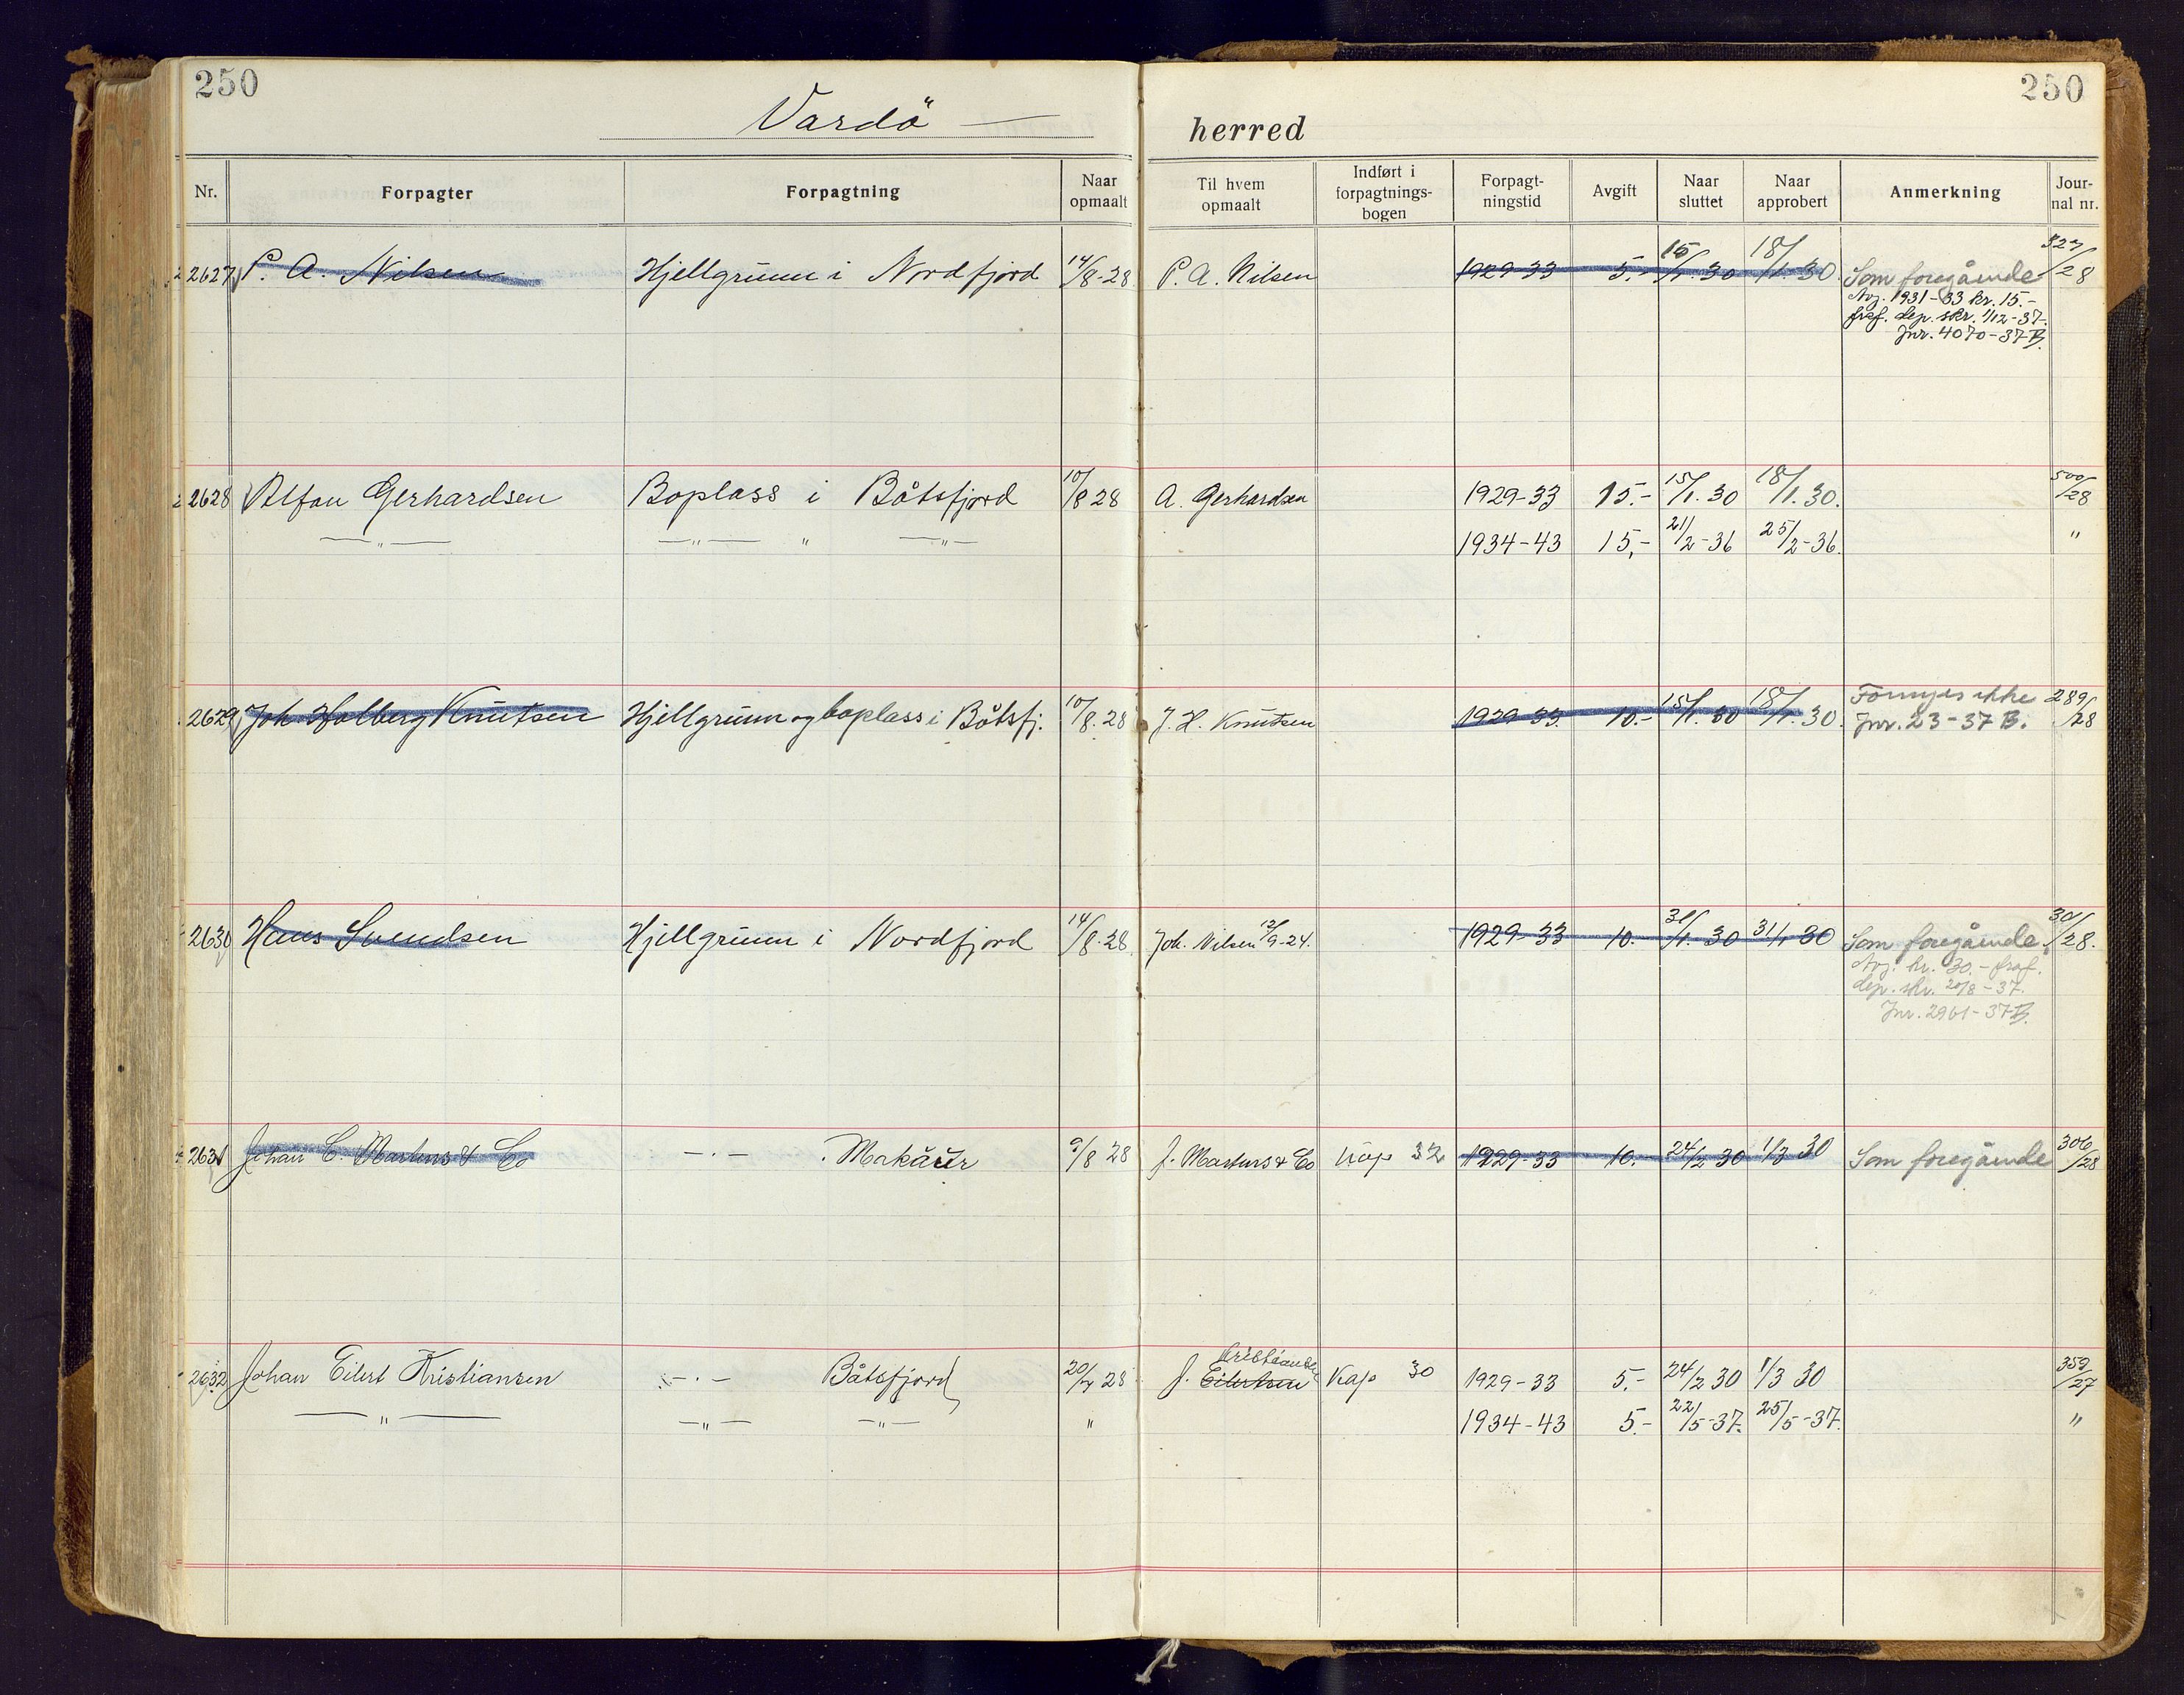 250
250
Vardö —
herred
Nr. Forpagter Forpagtning Naar opmaalt Til hvem opmaalt Indført i forpagtnings-bogen Forpagt-ningstid Avgift Naar sluttet Naar approbert Anmerkning Jour-nal nr.
2627 P. A. Nilsen Hjellgrunn i Nordfjord 14/8-28 P. A. Nilsen 1929-33 5.- 15/1. 30 18/1. 30 Som foregående 527/28
Avg. 1931-33 kr. 15.-
fraf. dep. skr. 1/12-37.
Jnr. 4070-37 B.
2628 Alfon Gerhardsen Boplass i Båtsfjord 10/8 28 A. Gerhardsen 1929-33 15.- 15/1. 30 18/1. 30. 500/28
—„— —„— „ —„— 1934-43 15,- 21/2-36 25/2-36. "
2629 Joh. Holberg Knutsen Hjellgrunn og boplass i Båtsfj. 10/8. 28 J. H. Knutsen 1929-33. 10.- 15/1. 30 18/1. 30. Fornyes ikke 289/28
Jnr. 23-37 B.
2630 Hans Svendsen Hjellgrunn i Nordfjord 14/8-28. Joh. Nilsen 12/9-24. 1929-33 10.- 31/1. 30 31/1 30 Som foregående 30/28.
Avg. kr. 30.- fraf.
dep. skr. 20/8-37.
Jnr. 2961-37 B.
2631 Johan C. Martens & Co —.— . Makåur 9/8 28 J. Martens & Co Kap 32 1929-33 10.- 24/2 30 1/3 30 Som foregående 306/28
2632 Johan Eilert Kristiansen —.— Båtsfjord 20/7 28 J. Eilertsen Kristiansen Kap 30 1929-33 5.- 24/2 30 1/3 30 359/27
—„— —„— —„— " 1934-43 5.- 22/5-37. 25/5-37. "